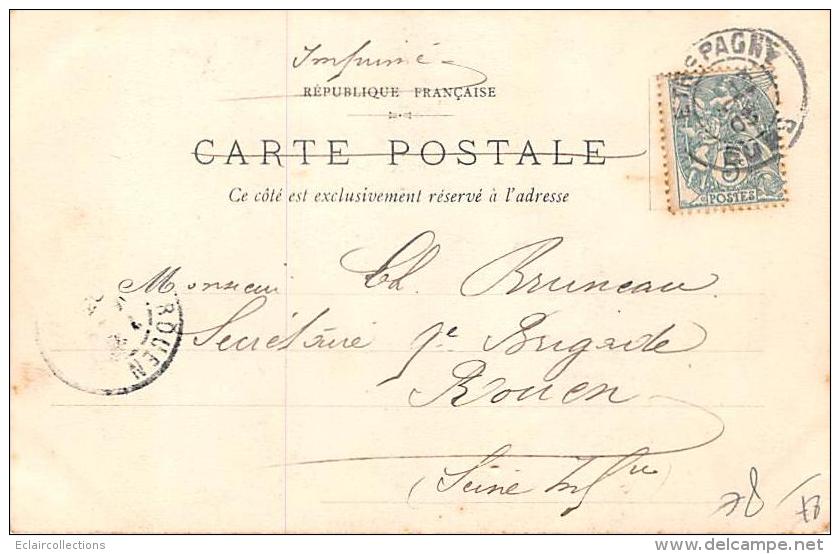 Imprimé
RÉPUBLIQUE FRANÇAISE
CARTE POSTALE
Ce côté est exclusivement réservé à l'adresse
POSTES
EURE
ROUEN
Monsieur Ch. Bruneau
Secrétaire
Brigade
Rouen
(Seine Infre)
78
Eclaircollections
www.delcampe.net